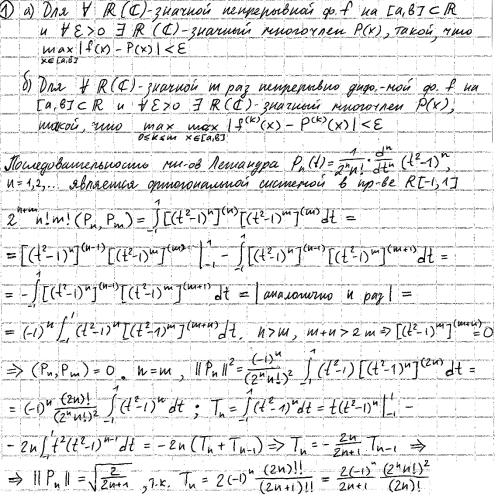 ① а) Для ∀ ℝ(ℂ)-значной непрерывной ф. f на [a,b]⊂ℝ
и ∀ε>0 ∃ ℝ(ℂ)-значный многочлен P(x), такой, что
max_{x∈[a,b]} |f(x) - P(x)| < ε
б) Для ∀ ℝ(ℂ)-значной m раз непрерывно диф.-мой ф. f на
[a,b]⊂ℝ и ∀ε>0 ∃ ℝ(ℂ)-значный многочлен P(x),
такой, что max_{0≤k≤m} max_{x∈[a,b]} |f^{(k)}(x) - P^{(k)}(x)| < ε
Последовательность мн-ов Лежандра P_n(t) = 1/(2^n n!) · d^n/dt^n (t²-1)^n,
n=1,2,... является ортогональной системой в пр-ве R[-1,1]
2^{n+m} n! m! (P_n, P_m) = ∫_{-1}^{1} [(t²-1)^n]^{(n)} [(t²-1)^m]^{(m)} dt =
= [(t²-1)^n]^{(n-1)} [(t²-1)^m]^{(m)} |_{-1}^{1} - ∫_{-1}^{1} [(t²-1)^n]^{(n-1)} [(t²-1)^m]^{(m+1)} dt =
= -∫_{-1}^{1} [(t²-1)^n]^{(n-1)} [(t²-1)^m]^{(m+1)} dt = | аналогично n раз | =
= (-1)^n ∫_{-1}^{1} (t²-1)^n [(t²-1)^m]^{(m+n)} dt. n>m, m+n>2m ⇒ [(t²-1)^m]^{(m+n)} = 0
⇒ (P_n, P_m) = 0. n=m, ||P_n||² = (-1)^n/(2^n n!)² ∫_{-1}^{1} (t²-1) [(t²-1)^n]^{(2n)} dt =
= (-1)^n (2n)!/(2^n n!)² ∫_{-1}^{1} (t²-1)^n dt ; T_n = ∫_{-1}^{1} (t²-1)^n dt = t(t²-1)^n |_{-1}^{1} -
- 2n ∫_{-1}^{1} t²(t²-1)^{n-1} dt = -2n (T_n + T_{n-1}) ⇒ T_n = -2n/(2n+1) T_{n-1} ⇒
⇒ ||P_n|| = √(2/(2n+1)), т.к. T_n = 2(-1)^n (2n)!!/(2n+1)!! = 2(-1)^n/(2n+1) (2^n n!)²/(2n)!